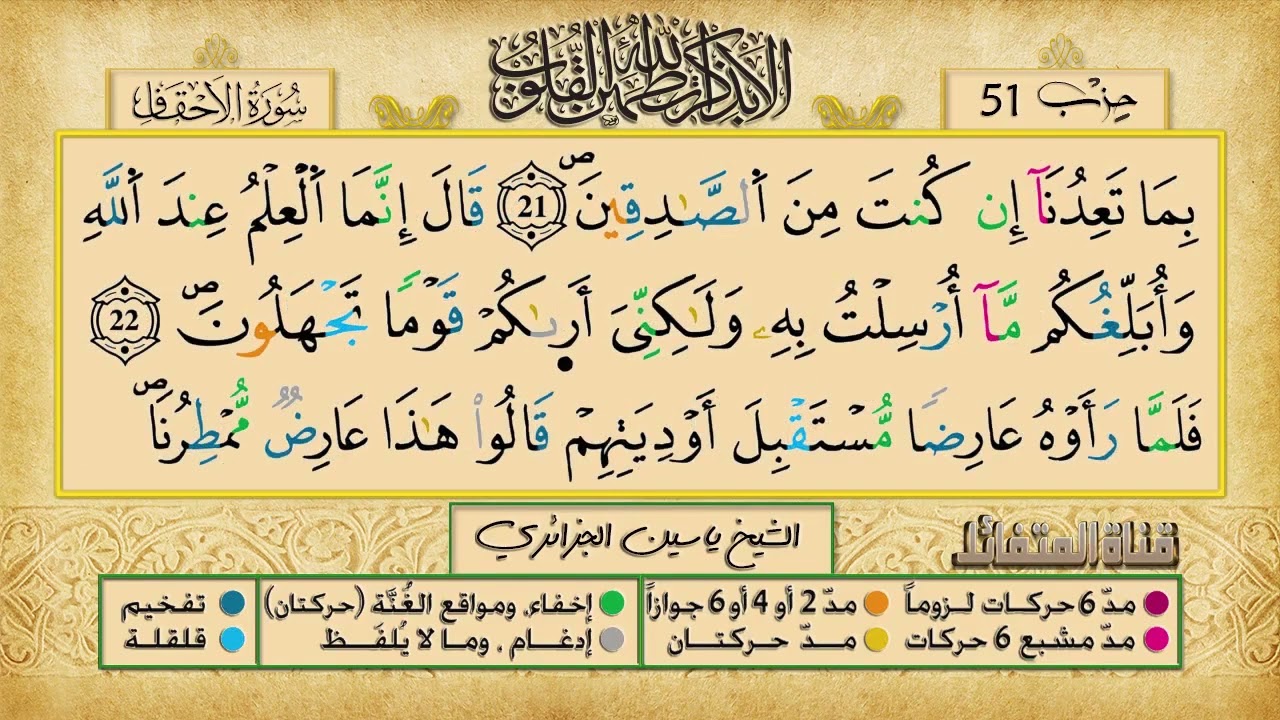 ألا بذكر الله تطمئن القلوب
حزب 51
سورة الأحقاف
بِمَا تَعِدُنَآ إِن كُنتَ مِنَ اَ۬لصَّٰدِقِينَۖ 21 قَالَ إِنَّمَا اَ۬لْعِلْمُ عِندَ اَ۬للَّهِ
وَأُبَلِّغُكُم مَّآ أُرْسِلْتُ بِهِۦ وَلَٰكِنِّىَ أَر۪ىٰكُمْ قَوْماً تَجْهَلُونَۖ 22
فَلَمَّا رَأَوْهُ عَارِضاً مُّسْتَقْبِلَ أَوْدِيَتِهِمْ قَالُواْ هَٰذَا عَارِضٌ مُّمْطِرُنَاۖ
قناة المتفائل
الشيخ ياسين الجزائري
مدّ 6 حركات لـزوماً مدّ 2 أو 4 أو 6 جوازاً إخفاء، ومواقع الغُنَّة (حركتان) تفخيم
مدّ مشبع 6 حركات مـدّ حـركتـان إدغام ، وما لا يُلفَـظ قلقلة